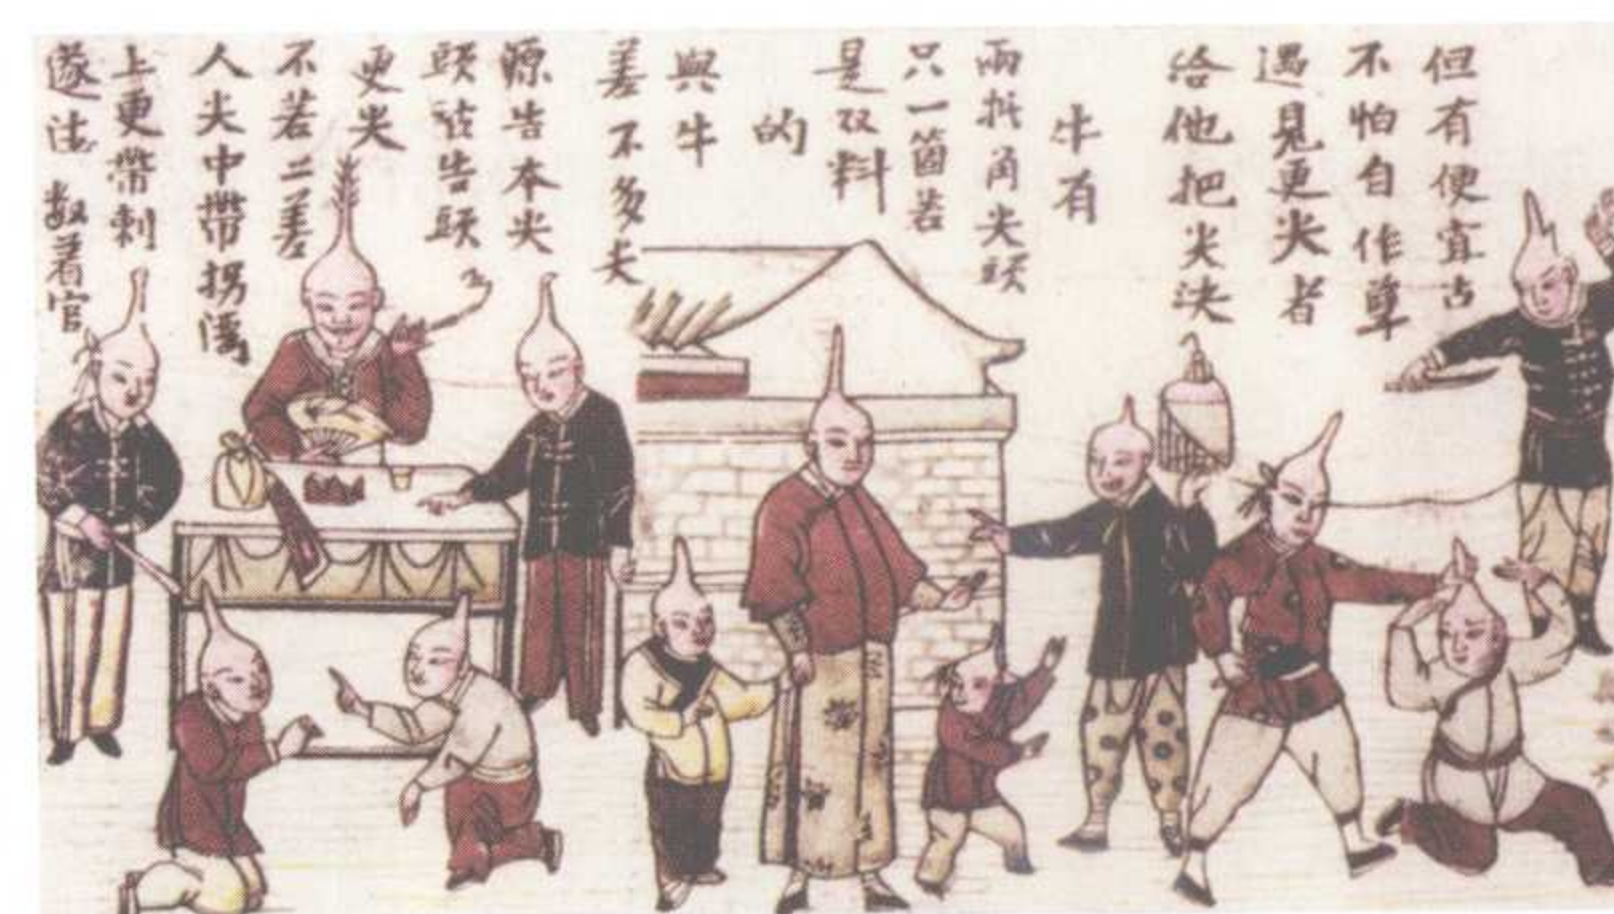 但有便宜占
不怕自作孽
遇見更尖者
給他把尖決
牛有
兩抵角尖頭
只一箇若
是双料
的
與牛
差不多尖
原告本尖
頭被告頭
更尖
不若二差
人尖中帶拐溜
上更帶刺
遂法 数着官